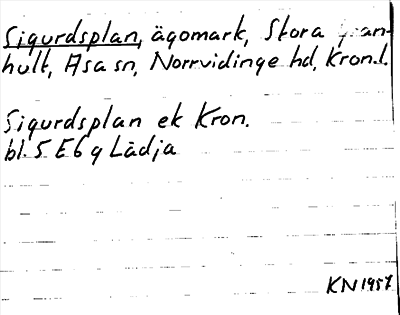 Sigurdsplan, ägomark, Stora Gran-
hult, Asa sn, Norrvidinge hd, Kron.l.
Sigurdsplan ek Kron.
bl. 5 E6g Lädja
KN 1957